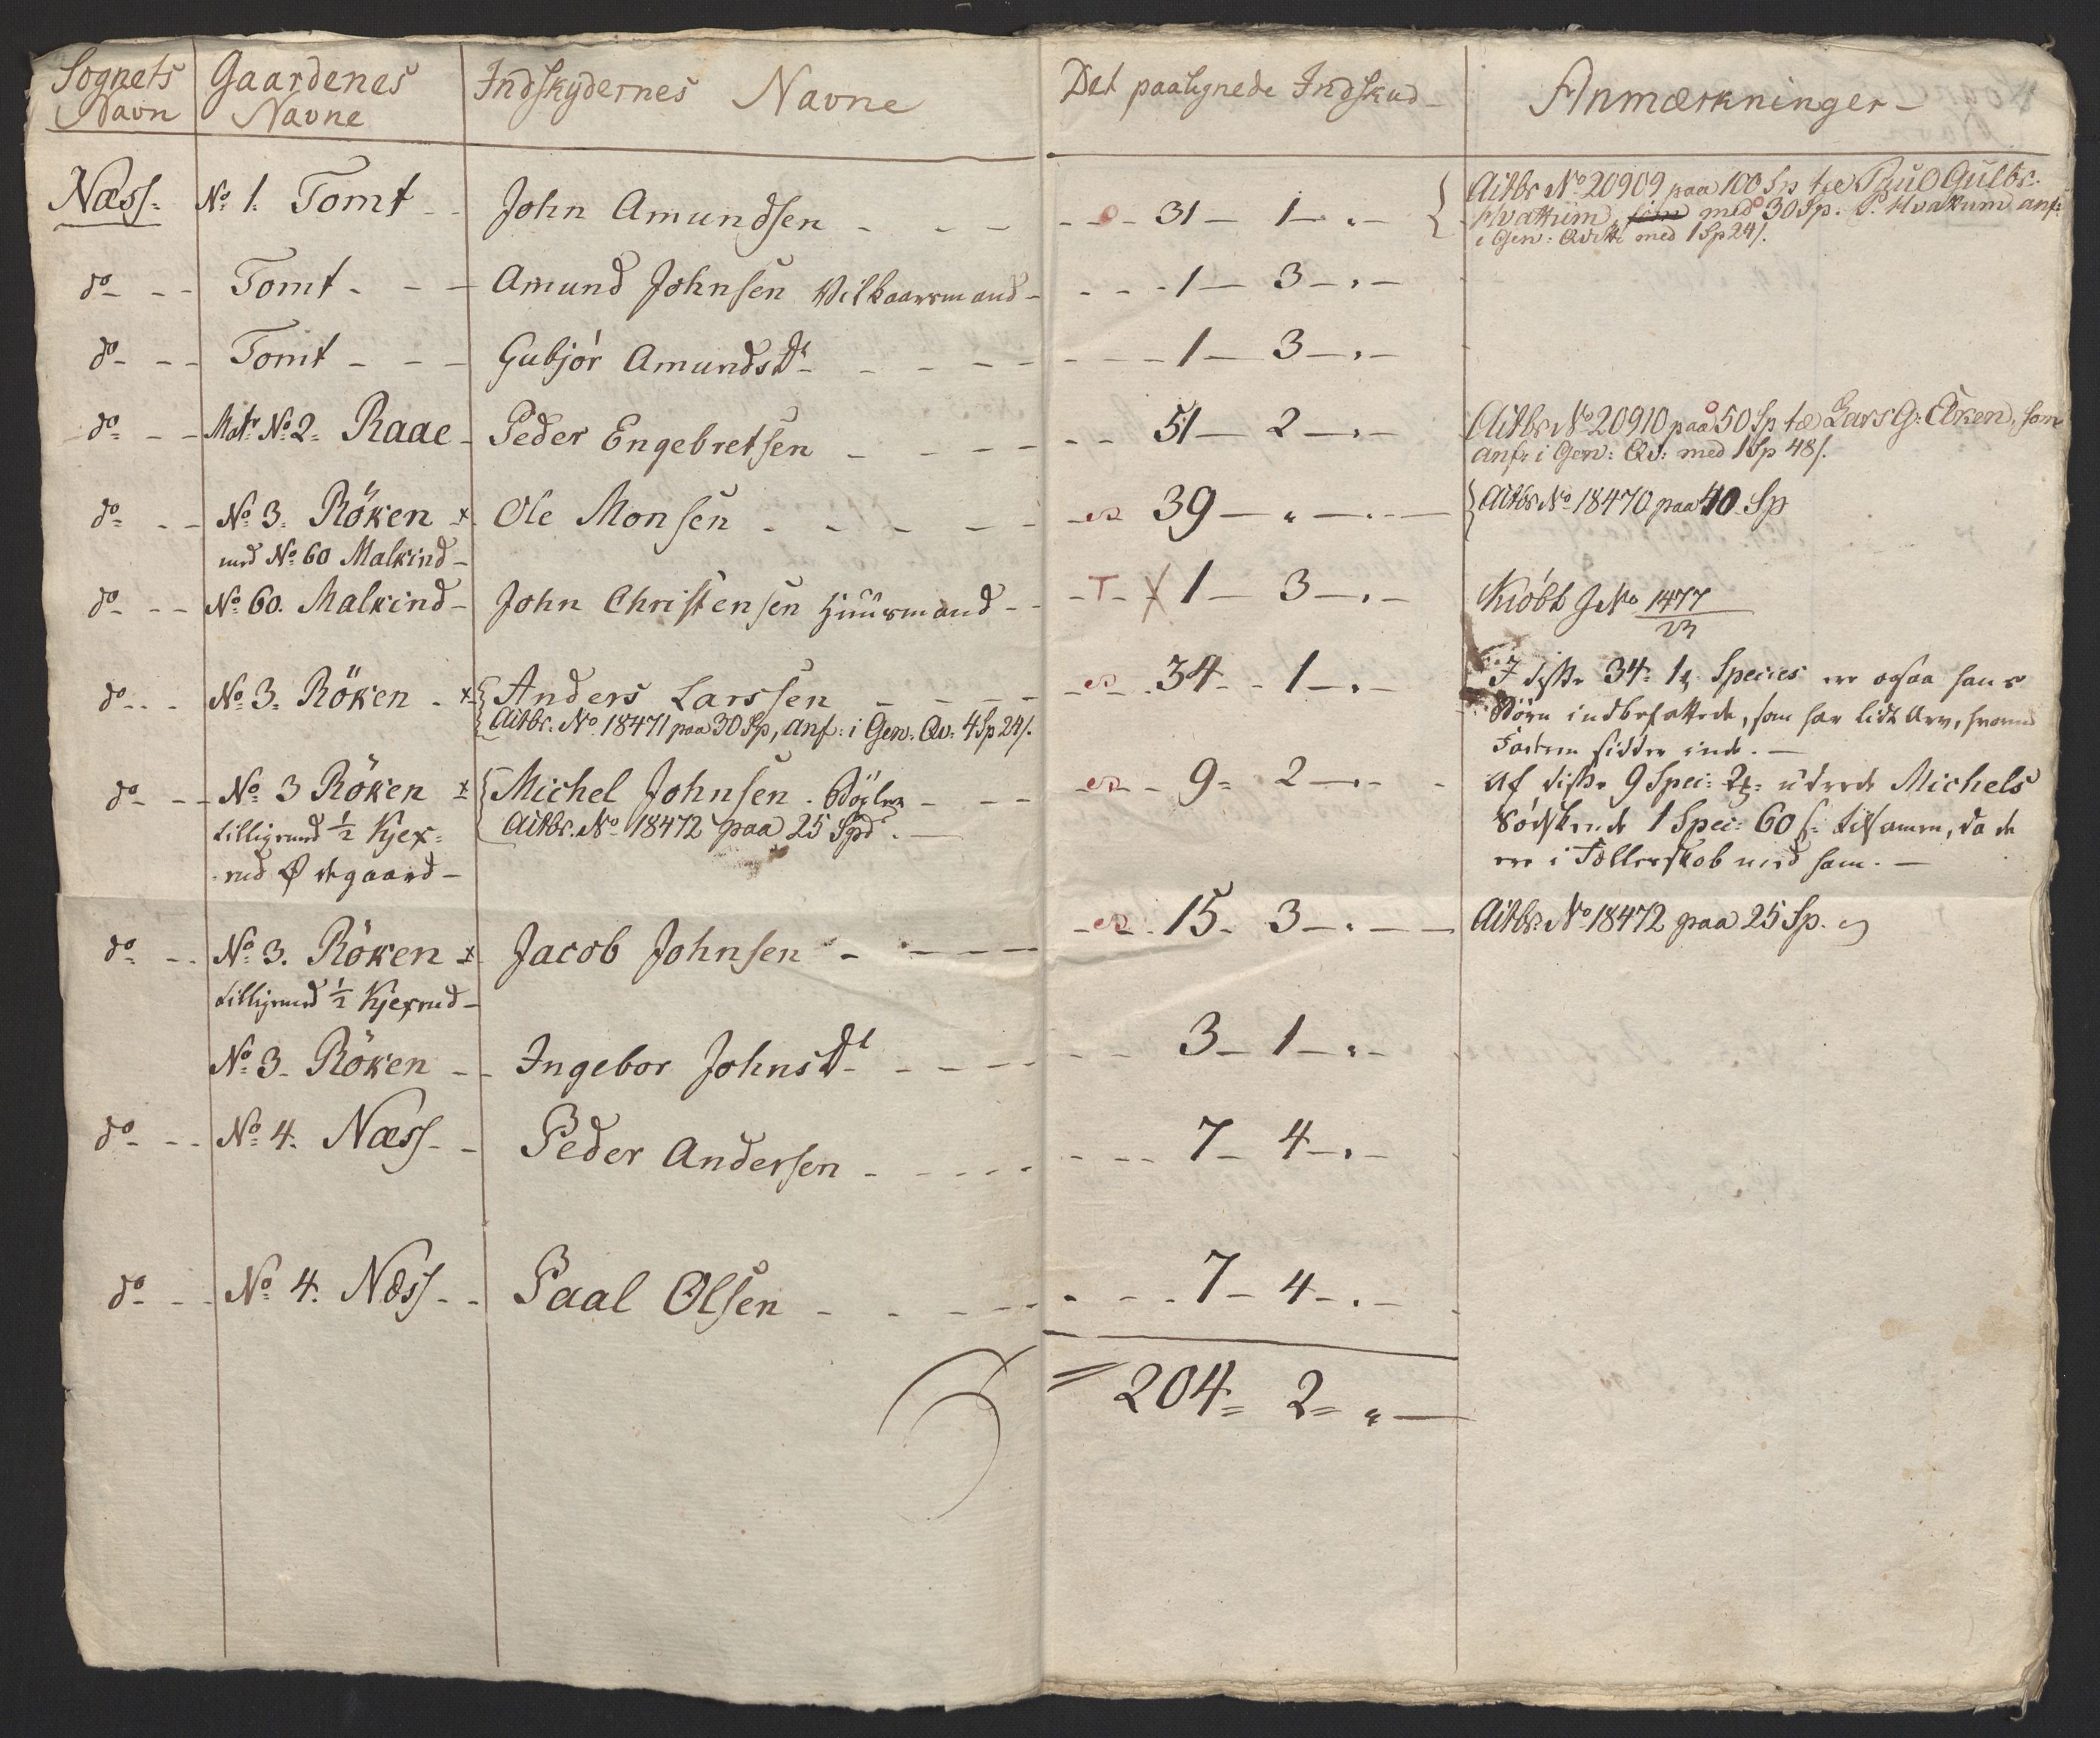 Sognets Navn | Gaardenes Navne | Indskydernes Navne | Det paalignede Indskud | Anmærkninger
Næss. | No 1. Tomt | John Amundsen | 31 — 1 — " — | { Actbr No 20909 paa 100 Sp til Poul Gulbr.
Hvattum, som med 30 Sp. P. Hvattum anf:
i Gen: Qvitt: med 1 Sp 24 s.
do | Tomt | Amund Johnsen Vilkaarsmand | 1 — 3 — " —
do | Tomt | Gubjør Amundsdt | 1 — 3 — " —
do | Matr No 2. Raae | Peder Engebretsen | 51 — 2 — " — | Actbr No 20910 paa 50 Sp til Lars G: Aken, som
anf: i Gen: Qv: med 1 Sp 48 s.
do | No 3. Röken x | Ole Monsen | 39 — " — " — | { Actbr No 18470 paa 40 Sp
med No 60 Malkind
do | No 60. Malkind | John Christensen Huusmand | T X 1 — 3 — " — | Kiøbt J No 1477/23
do | No 3. Röken x | { Anders Larssen | 34 — 1 — " — | I disse 34 — 1 Species er ogsaa hans
Actbr. No 18471 paa 30 Sp, anf: i Gen. Qv. 4 Sp 24 s. | Børn indbefattede, som har lidt Arv, hvormed
Faderen sidder inde. —
do | No 3 Röken x | { Michel Johnsen | 9 — 2 — " — | Af disse 9 Spec: 2 udrede Michels
tilligemed ½ Kjex= | Actbr. No 18472 paa 25 Spd. | Sødskende 1 Spec: 60 s: tilsamen, da de
rud Ødegaard | ere i Fællesskab med ham. —
do | No 3. Röken x | Jacob Johnsen | 15 — 3 — " — | Actbr. No 18472 paa 25 Sp.
tilligemed ½ Kjexrud
No 3. Röken | Ingebor Johnsdt | 3 — 1 — " —
do | No 4. Næss | Peder Andersen | 7 — 4 — " —
do | No 4. Næss | Paal Olsen | 7 — 4 — " —
= 204 = 2 = " —